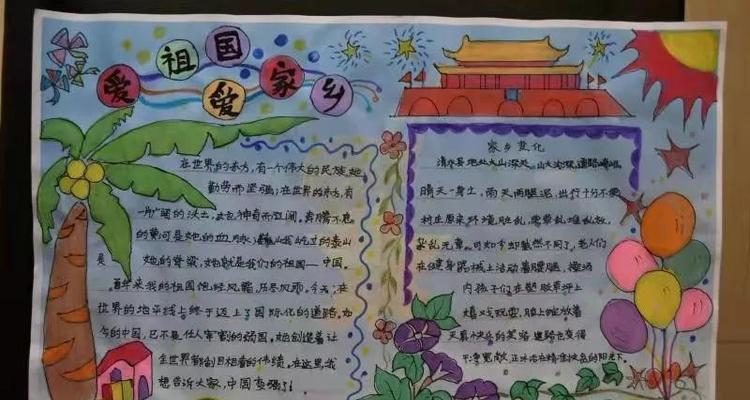 爱祖国爱家乡
在世界的东方,有一个伟大的民族,她
勤劳而坚强;在世界的东方,有
一片广阔的沃土,她神奇而壮阔。奔腾不息
的黄河是她的血脉,巍峨屹立的泰山
是她的脊梁,她就是我们的祖国——中国。
百年来我的祖国饱经风霜,历尽风雨,今天,在
世界的地平线上终于迈上了国际化的道路。如
今的中国,已不是任人宰割的弱国。她创造着让
全世界都刮目相看的伟绩。在这里,我
想告诉大家,中国变强了!
家乡变化
清水县地处大山深处,山大沟深,道路崎岖,
晴天一身土,雨天两腿泥,出行十分不便
村庄原来环境脏乱,柴草乱堆乱放,
杂乱无章。可如今却截然不同了。老人们
在健身器械上活动着腰腿,操场
内孩子们在塑胶草坪上
嬉戏玩耍,脸上绽放着
天真快乐的笑容,道路也变得
干净宽敞,正沐浴在精准扶贫的阳光下。